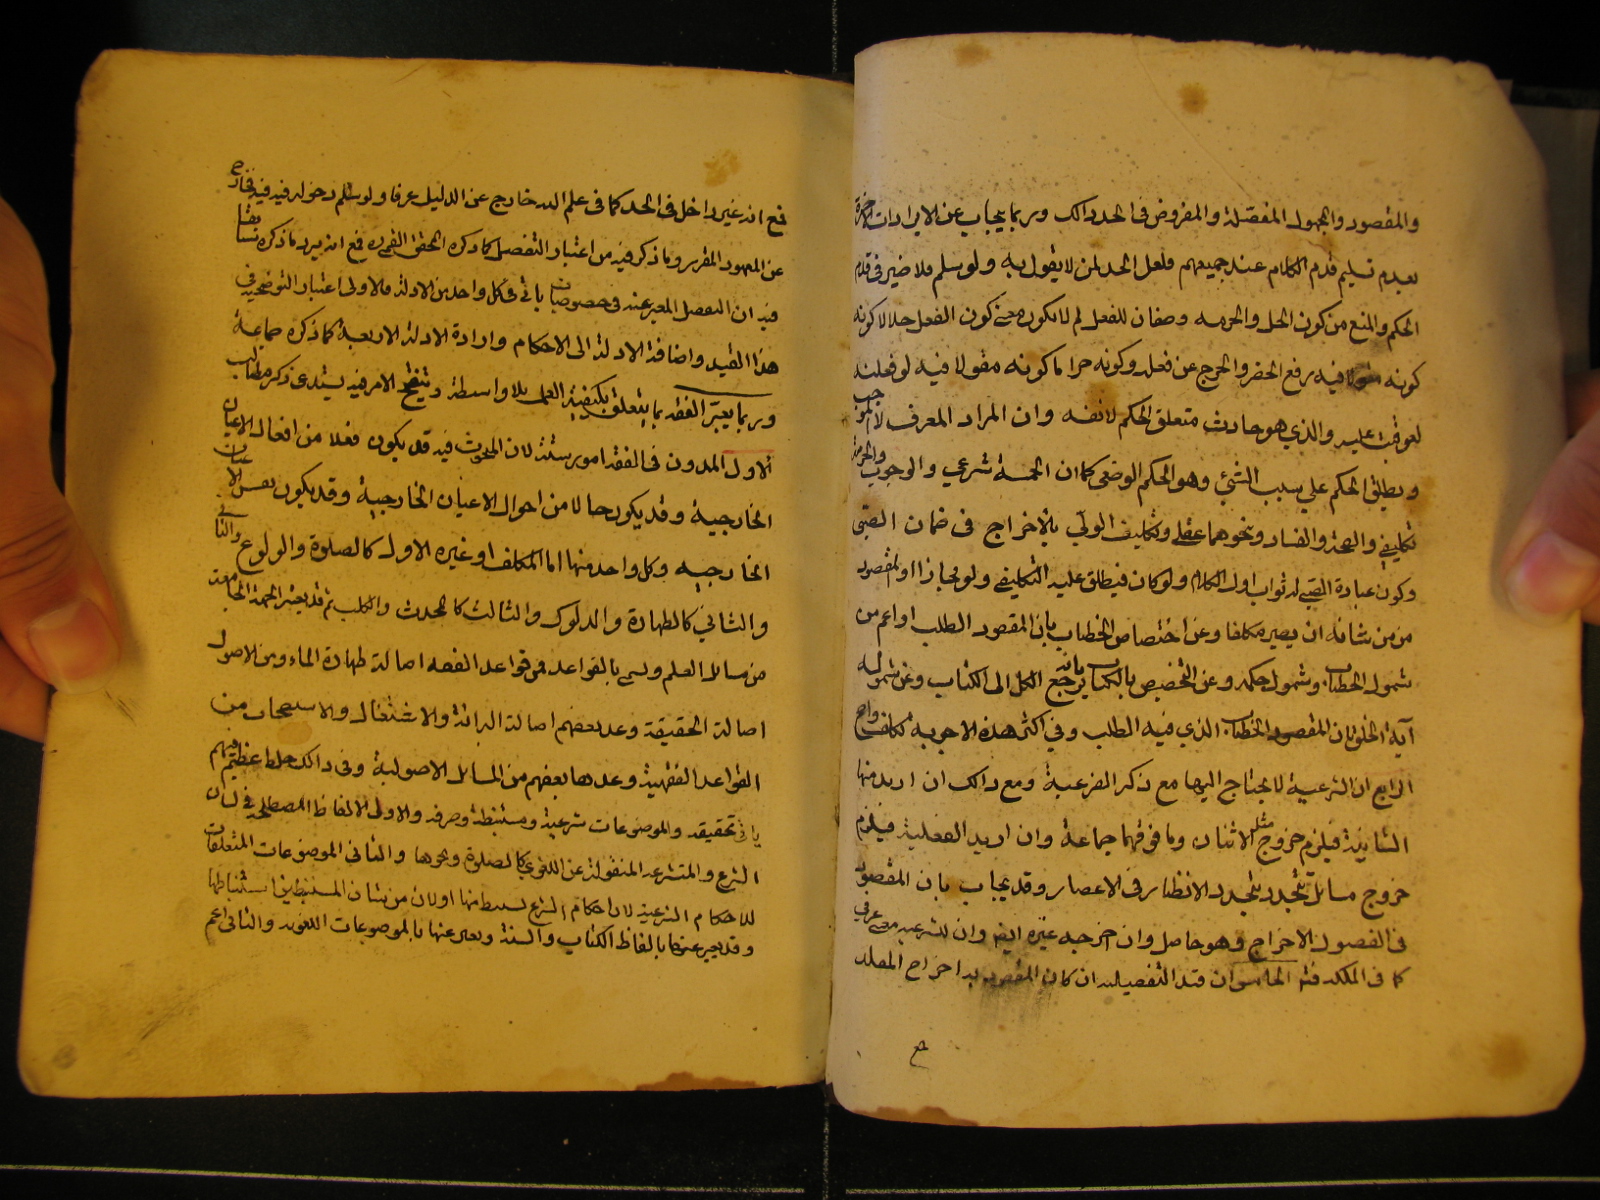 والمقصود والمجهول المفصلة والمفروض في الحد ذالك وربما يجاب عن الايرادات الاخيرة
بعدم تسليم قدم الكلام عند جميعهم فلعل الحد لمن لا يقول به ولو سلم فلا ضير في قدم
الحكم والمنع من كون الحل والحرمه وصفان للفعل لم لا يكون معنى كون الفعل حلالا كونه
كونه مقولا فيه رفع الحظر والحرج عن فعله وكونه حراما كونه مقولا فيه لو فعلته
لعوقبت عليه والذي هو حادث متعلق الحكم لا نفسه وان المراد المعرف لا الموجب
ويطلق الحكم على سبب الشئ وهو الحكم الوضعي كما ان الخمسة شرعي والوجوب والحرمة
تكليفي والصحة والفساد ونحوهما عقلي وتكليف الولي بالاخراج في ضمان الصبي
وكون عبادة الصبي له ثواب اول الكلام ولو كان فيطلق عليه التكليفي ولو مجازا او المقصود
من من شانه ان يصير مكلفا وعن اختصاص الخطاب بان المقصود الطلب او اعم من
شمول الخطاب وشمول حكمه وعن التخصيص بالكتاب بانه يرجع الكل الى الكتاب وعن شموله
آية الخلق بان المقصود الخطاب الذي فيه الطلب وفي اكثر هذه الاجوبه تكلف واضح
الرابع ان الشرعية لا يحتاج اليها مع ذكر الفرعية ومع ذالك ان اريد منها
الشانية فيلزم خروج مثل الاثنان وما فوقهما جماعة وان اريد الفعلية فيلزم
خروج مسائل تتجدد بتجدد الانظار في الاعصار وقد يجاب بان المقصود
في الفصول الاخراج وهو حاصل وان خرج به غيره ايضا وان للشرعيه معنى عرفي
كما في الملكه فتم الخامس ان قيد التفصيليه ان كان المقصود به اخراج المقلد
فع انه غير داخل في الحد كما في علم الله خارج عن الدليل عرفا ولو سلم دخوله فيه فيخارج
عن المعهود المقرر وما ذكر فيه من اعتبار التفصيل كما ذكره المحقق القمي ره فع انه يرد ما ذكره
فيه ان التفصيل المعبر عنه في خصوصيات ياتي في كل واحد من الادلة فالاولى اعتبار التوضيح في
هذا القيد واضافة الادلة الى الاحكام وارادة الادلة الاربعة كما ذكره جماعة
وربما يعبر الفقه بما يتعلق بكيفية العمل بلا واسطة وتنقيح الامر فيه يستدعي ذكر مطالب
الاول المدون في الفقه امور ستة لان المبحوث فيه قد يكون فعلا من افعال الاعيان
الخارجية وقد يكون حالا من احوال الاعيان الخارجية وقد يكون نفس الاعيان
الخارجيه وكل واحد منها اما المكلف او غيره الاول كالصلوة والولوغ والثاني
والثاني كالطهارة والدلوك والثالث كالمحدث والكلب ثم قد يعتبر الجهة الجامعة
من مسائل العلم ويسمى بالقواعد فمن قواعد الفقه اصالة طهارة الماء ومن الاصول
اصالة الحقيقة وعد بعضهم اصالة البرائة والاشتغال والاستصحاب من
القواعد الفقهية وعدها بعضهم من المسائل الاصولية وفي ذالك خلط عظيم
ياتي تحقيقه والموضوعات شرعية ومستنبطة وصرفه والاولى الالفاظ المصطلحه في لسان
الشرع والمتشرعه المنقولة عن اللغوي كالصلوة ونحوها والثاني الموضوعات المتعلقات
للاحكام الشرعية لان احكام الشرع تستنبط منها او لان من شان المستنبطين استنباطها
وقد يعبر عنها بالفاظ الكتاب والسنة ويعبر عنها بالموضوعات اللغويه والثاني اعم